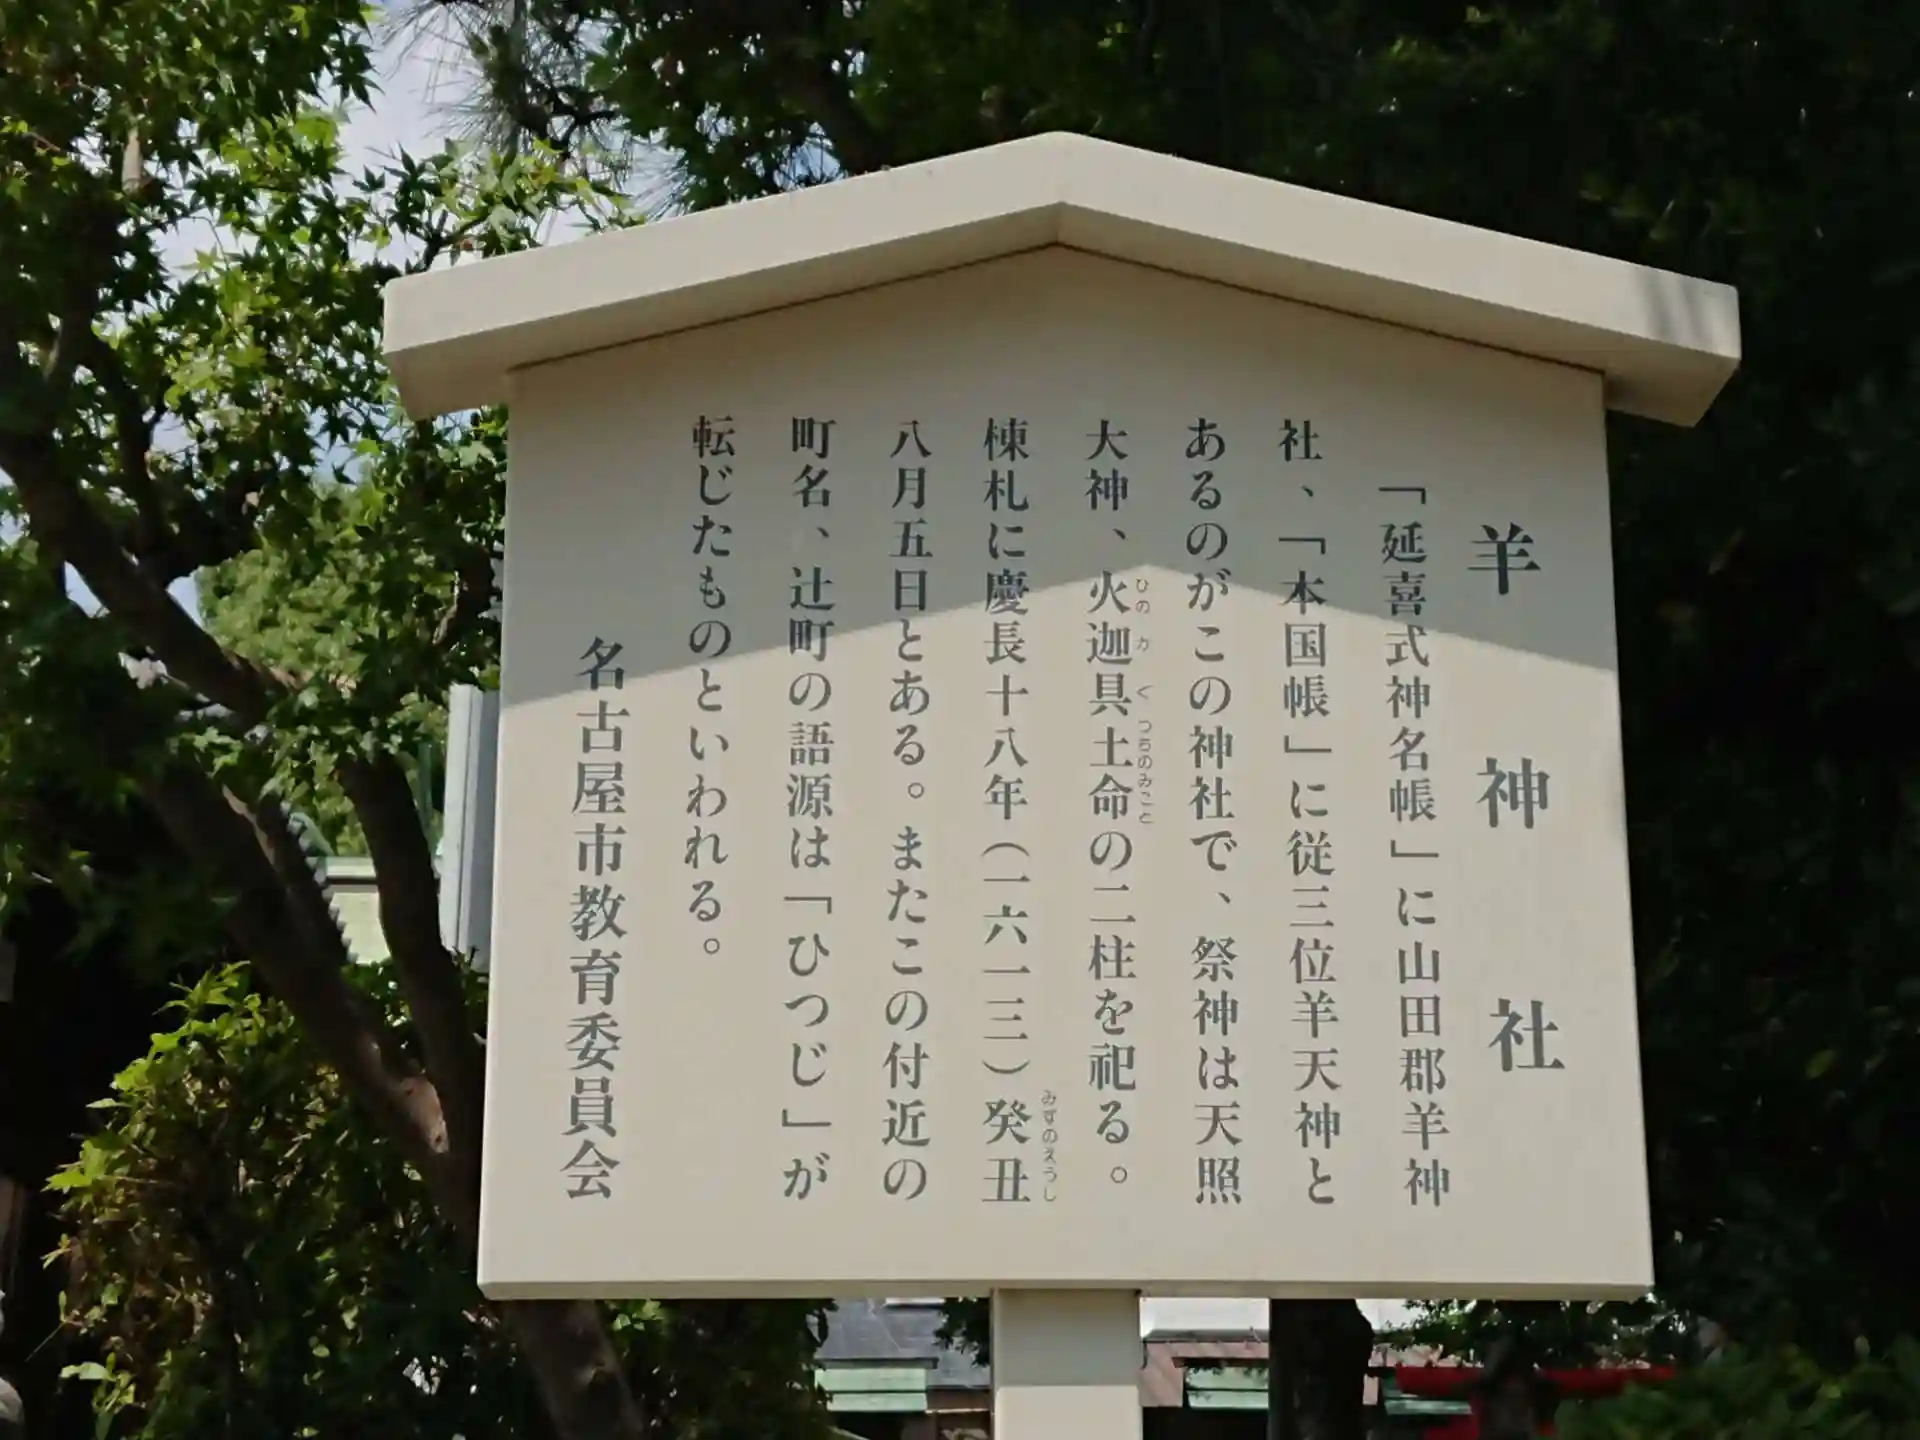 羊神社
「延喜式神名帳」に山田郡羊神
社、「本国帳」に従三位羊天神と
あるのがこの神社で、祭神は天照
大神、火迦具土命の二柱を祀る。
ひの か ぐ つちのみこと
棟札に慶長十八年（一六一三）癸丑
みずのえうし
八月五日とある。またこの付近の
町名、辻町の語源は「ひつじ」が
転じたものといわれる。
名古屋市教育委員会